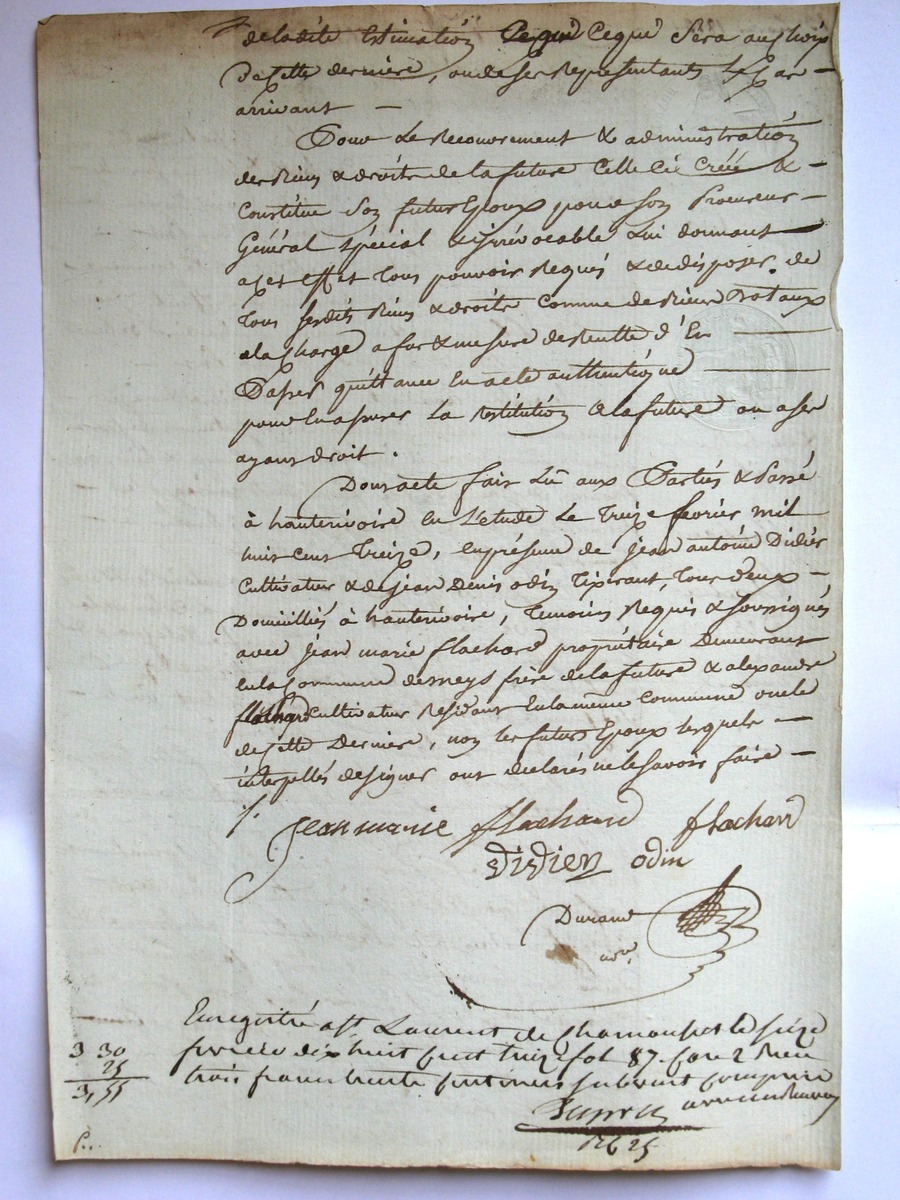 de ladite Estimation Cequi Sera au choix
De cette derniere, ou de ses Representants Le Cas
arrivant
Pour Le Recouvrement & administration
des Biens & droits de la future Celle ci Créé &
Constitue Son futur Epoux pour Son Procureur
Général Spécial & irrévocable Lui donnant
a cet effet Tous pouvoirs Requis & de disposer de
Tous Sesdits Biens & droits Comme de Biens Dotaux
a la Charge a fur & mesure de Recette d'En
Passer quittance En acte authentique
pour En assurer La Restitution a la future ou a ses
ayans droit.
Dont acte fait Lu aux Parties & Passé
à hauterivoire En L'étude Le Treize fevrier mil
huit Cent Treize, En présence de Jean antoine Didier
Cultivateur & de Jean Denis odin Tixerant, Tous deux
Domiciliés à hauterivoire, Temoins Requis & Soussignés
avec Jean marie flachard propriétaire Demeurant
En la Commune de meys frère de la future & alexandre
flachard Cultivateur Residant En la même Commune oncle
de cette Derniere, non les futurs Epoux lesquels
interpellés de Signer ont déclarés ne le Savoir faire
/.
Jean marie flachard flachard
Didier odin
Durand
not.
Enregistré a St Laurent de Chamousset le seize
fevrier dix huit cent treize fol 87. Case 2 Reçu
trois francs trente centimes subvent comprise
3 30
25
3,55